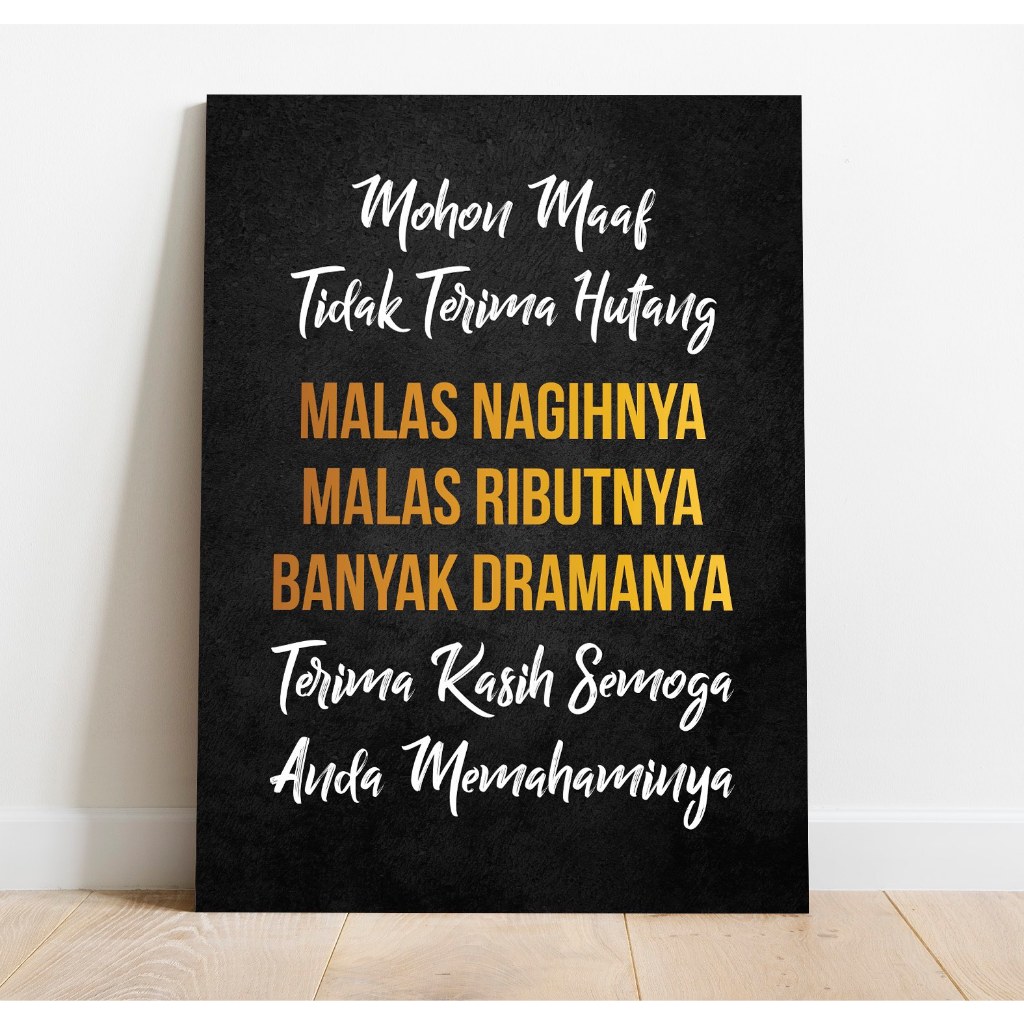 Mohon Maaf
Tidak Terima Hutang
MALAS NAGIHNYA
MALAS RIBUTNYA
BANYAK DRAMANYA
Terima Kasih Semoga
Anda Memahaminya